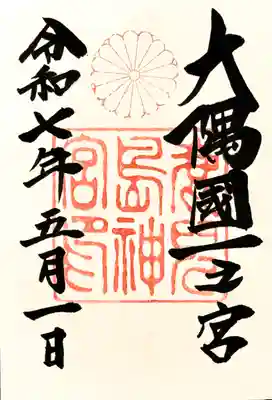 大隅國一之宮
鹿兒
島神
宮印
令和七年五月一日